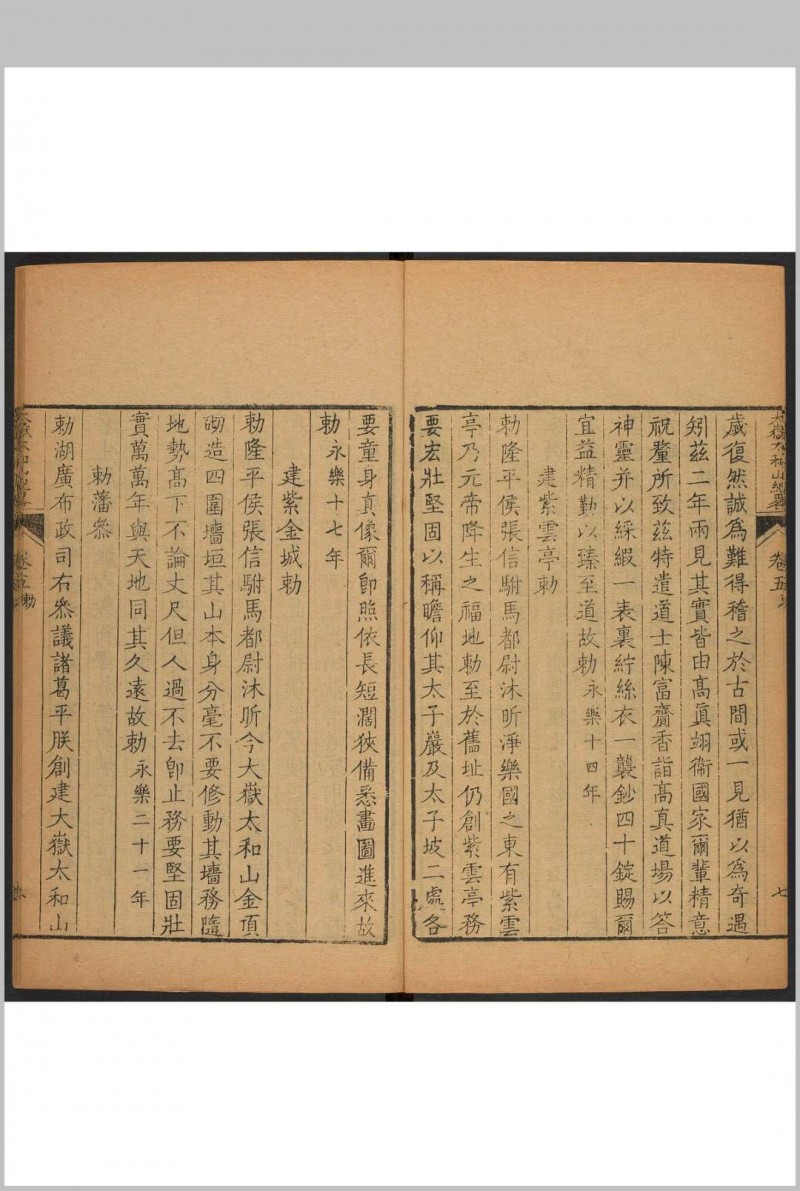 歲復然誠爲難得稽之於古間或一見猶以爲奇遇
矧茲二年兩見其實皆由髙眞翊衞國家爾輩精意
祝釐所致茲特遣道士陳富齎香詣髙真道場以答
神靈并以綵緞一表裏紵絲衣一襲鈔四十錠賜爾
宜益精勤以臻至道故勅永樂十四年
建紫雲亭勅
勅隆平侯張信駙馬都尉沐昕淨樂國之東有紫雲
亭乃元帝降生之福地勅至於舊址仍創紫雲亭務
要宏壯堅固以稱瞻仰其太子巖及太子坡二處各
要童身真像爾卽照依長短濶狹備悉畫圖進來故
勅永樂十七年
建紫金城勅
勅隆平侯張信駙馬都尉沐昕今大嶽太和山金頂
砌造四圍墻垣其山本身分毫不要修動其墻務隨
地勢髙下不論丈尺但人過不去卽止務要堅固壯
實萬萬年與天地同其久遠故勅永樂二十一年
勅藩叅
勅湖廣布政司右叅議諸葛平朕創建大嶽太和山
大嶽太和山紀畧
卷五
七
卷五 勅